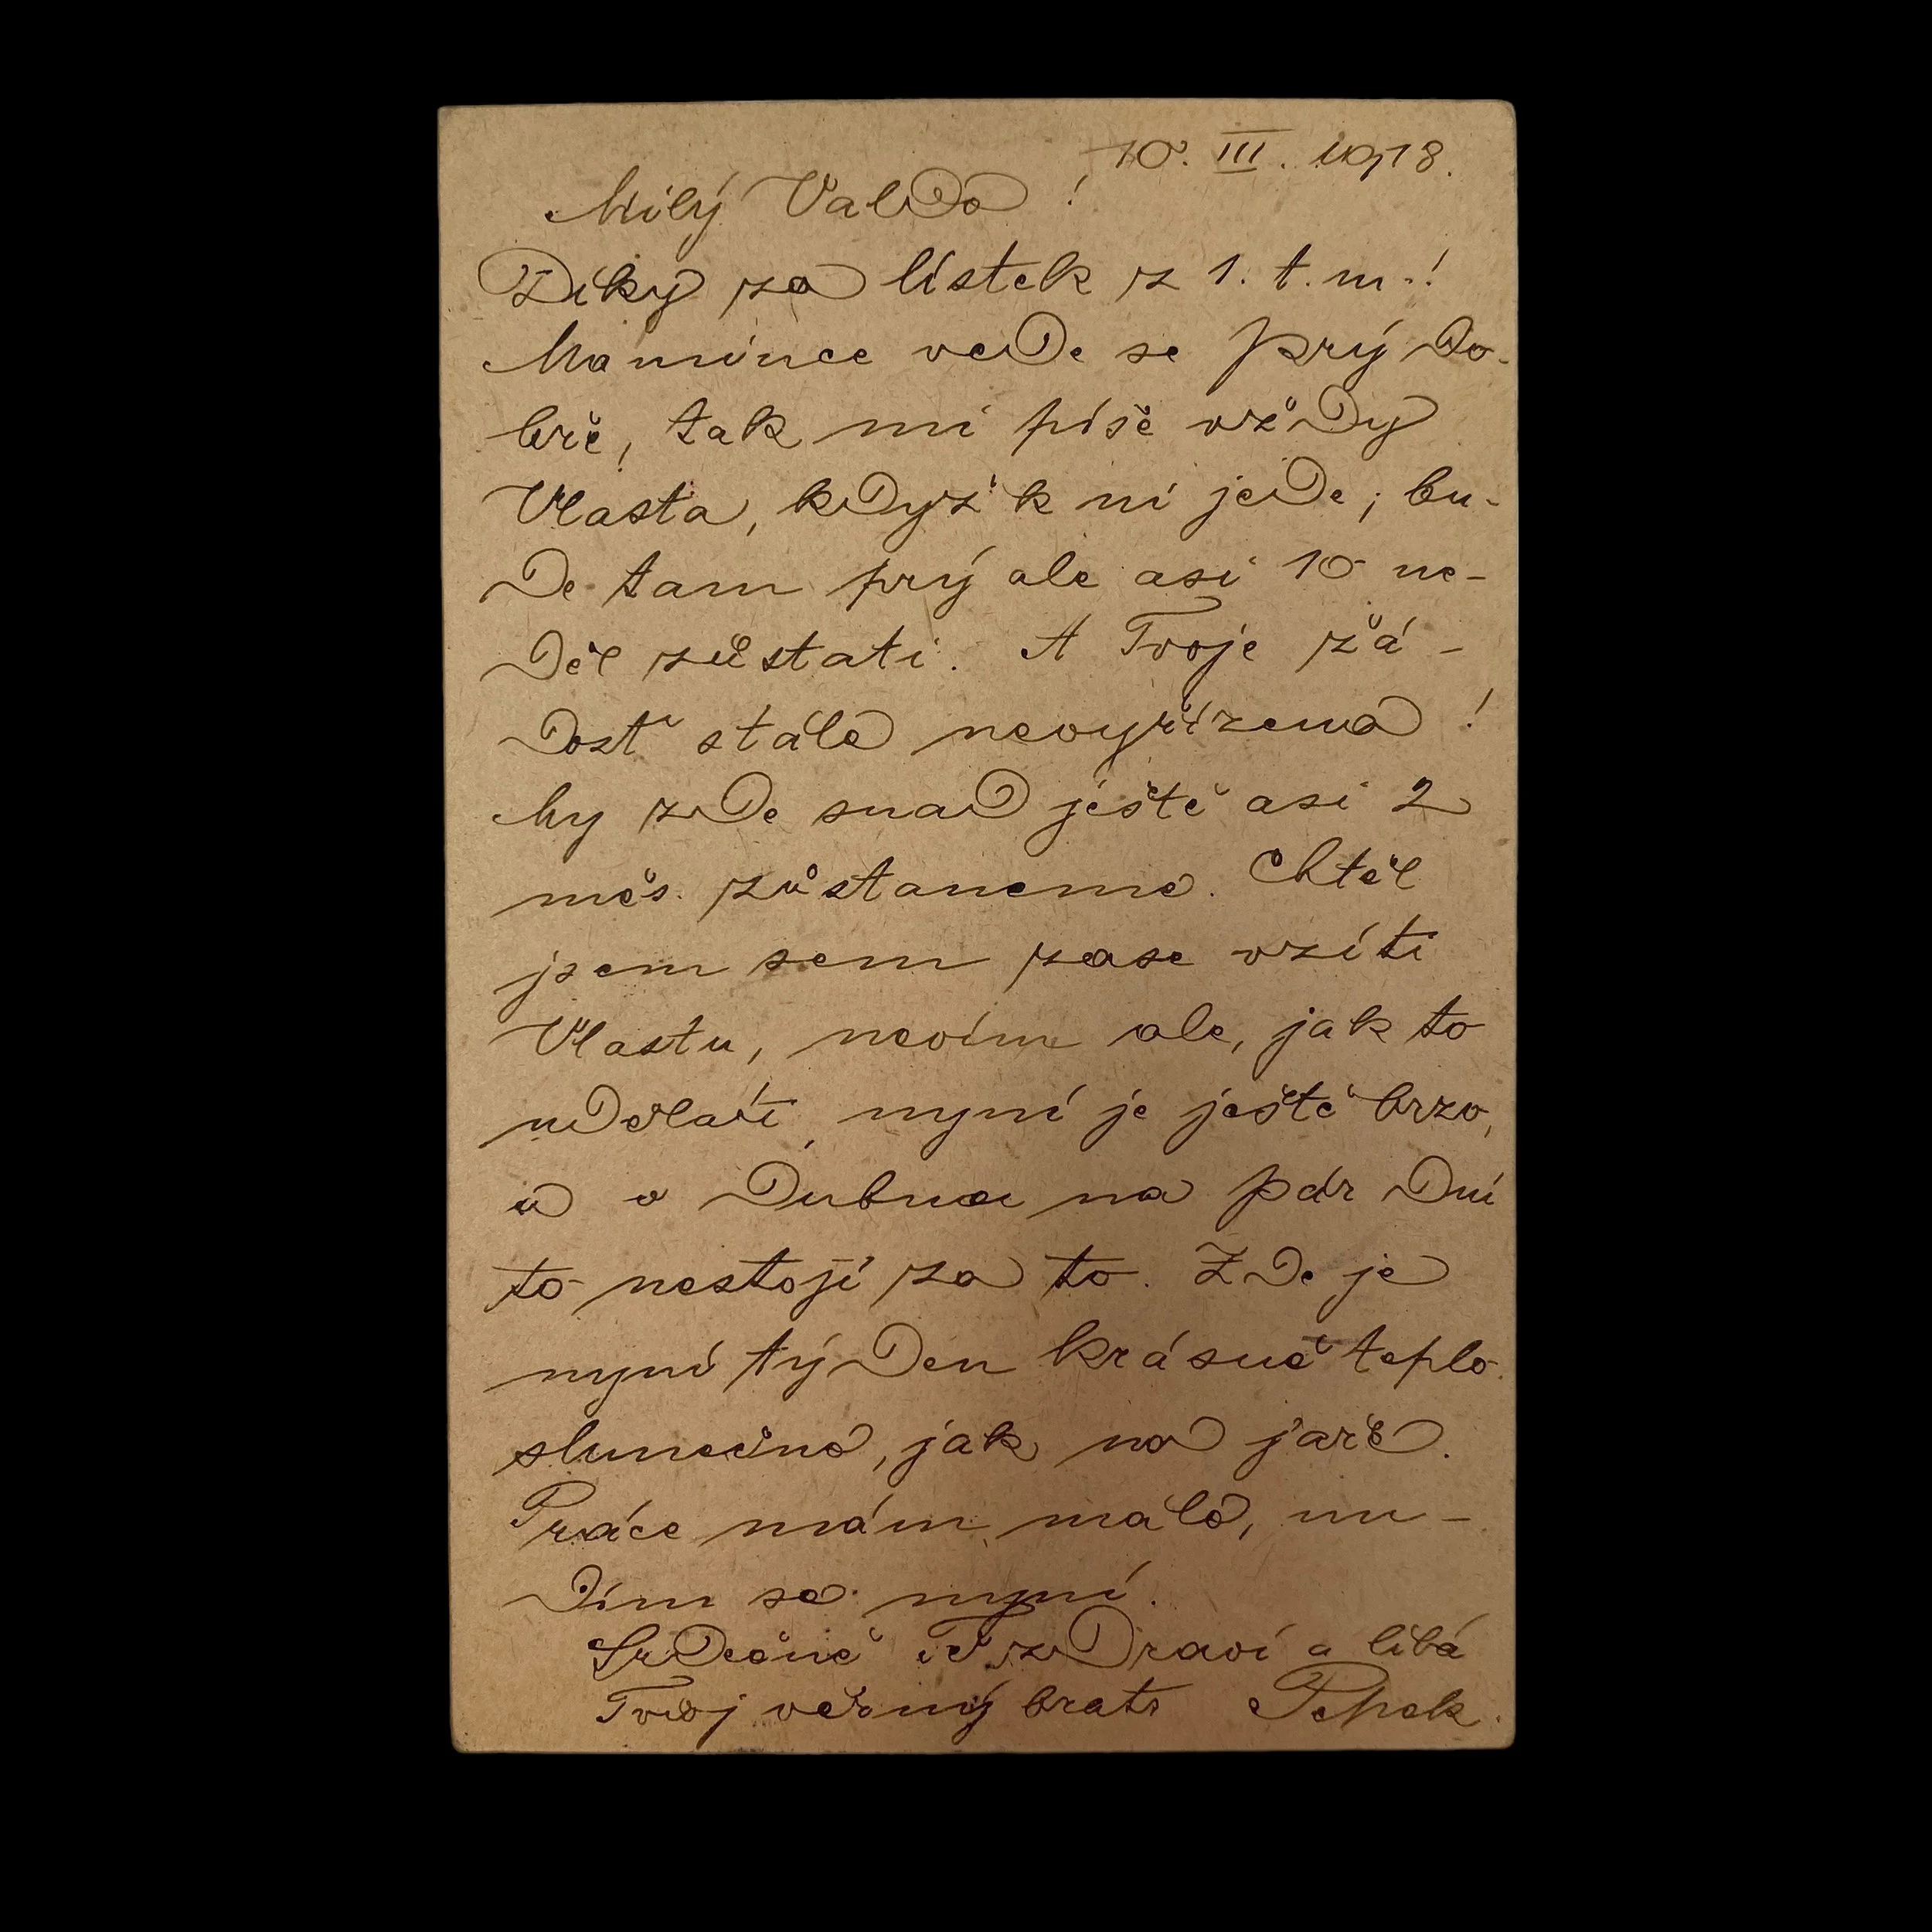 10. III. 1918.
Milý Valdo!
Díky za lístek z 1. t. m.!
Mamince vede se prý do-
bře, tak mi píše vždy
Vlasta, když k ní jede; bu-
de tam prý ale asi 10 ne-
děl zůstati. A Tvoje žá-
dosť stále nevyřízena!
My zde snad ještě asi 2
měs. zůstaneme. Chtěl
jsem sem zase vzíti
Vlastu, nevím ale, jak to
udělati, nyní je ještě brzo,
a v Dubnu na pár dní
to nestojí za to. Zde je
nyní týden krásně teplo
slunečno, jak na jaře.
Práce mám málo, nu-
dím se nyní.
Srdečně Tě zdraví a líbá
Tvůj věrný bratr Pepek.